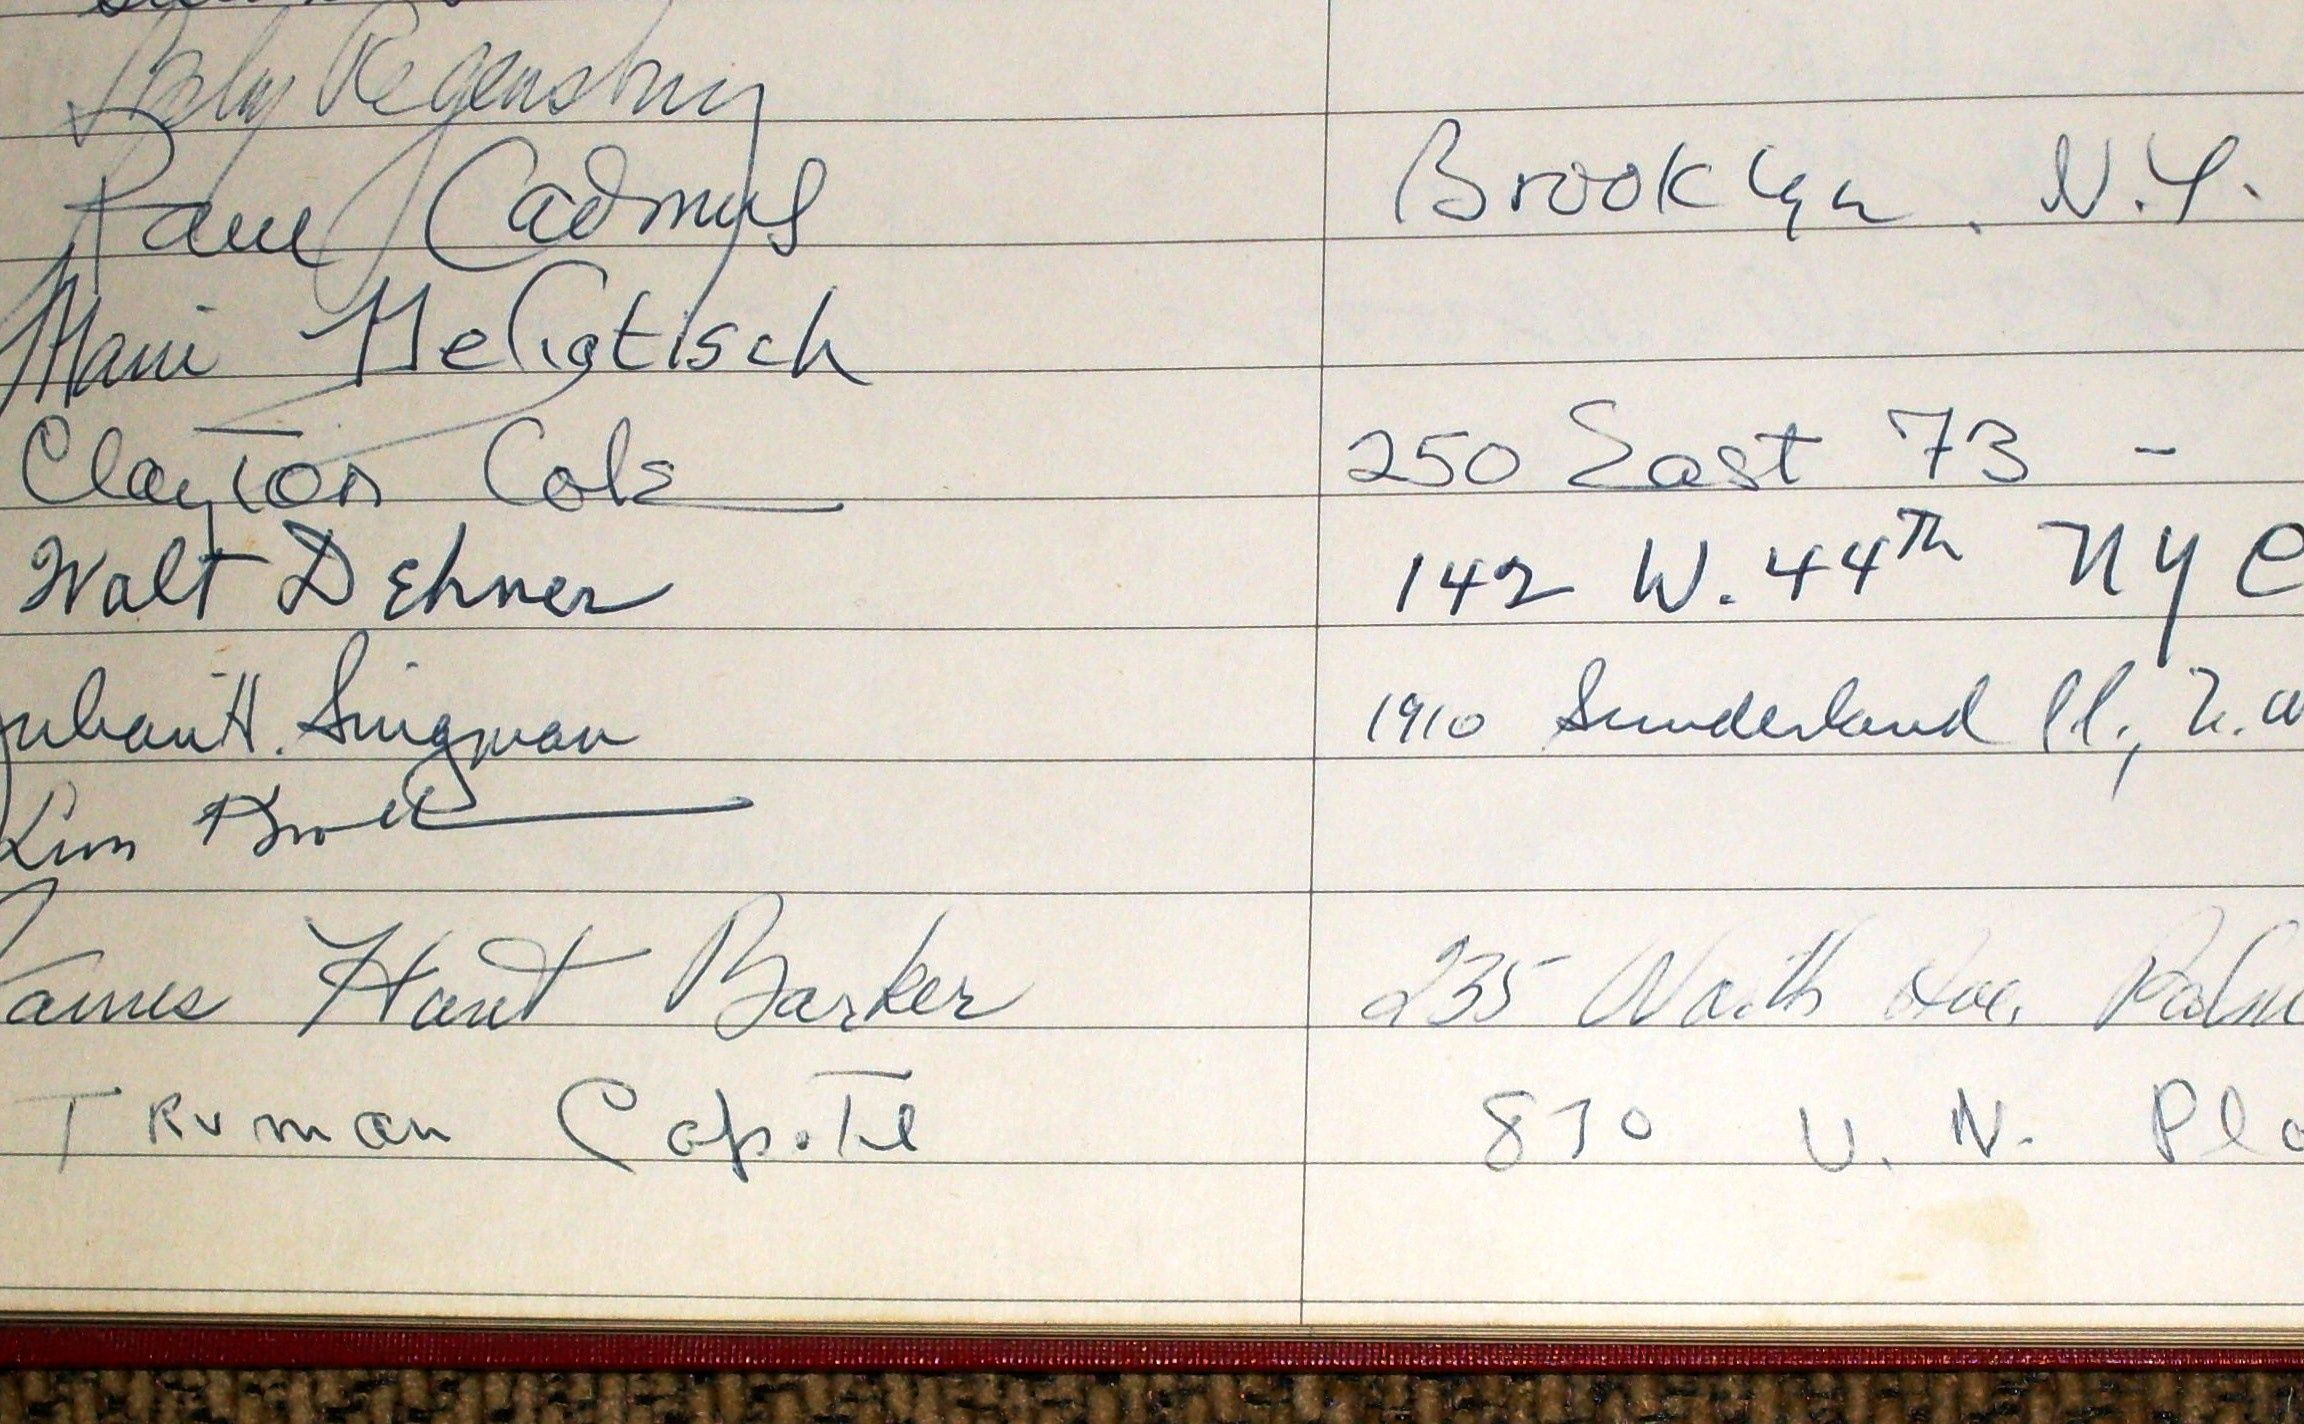 Regensburg
Paul Cadmus Brooklyn, N.Y.
Clayton Cole 250 East 73 -
Walt Dehner 142 W. 44th NYC
Julian H. Singman 1910 Sunderland Pl., N.W
James Hunt Barker 235 Worth Ave. Palm
Truman Capote 870 U.N. Pla